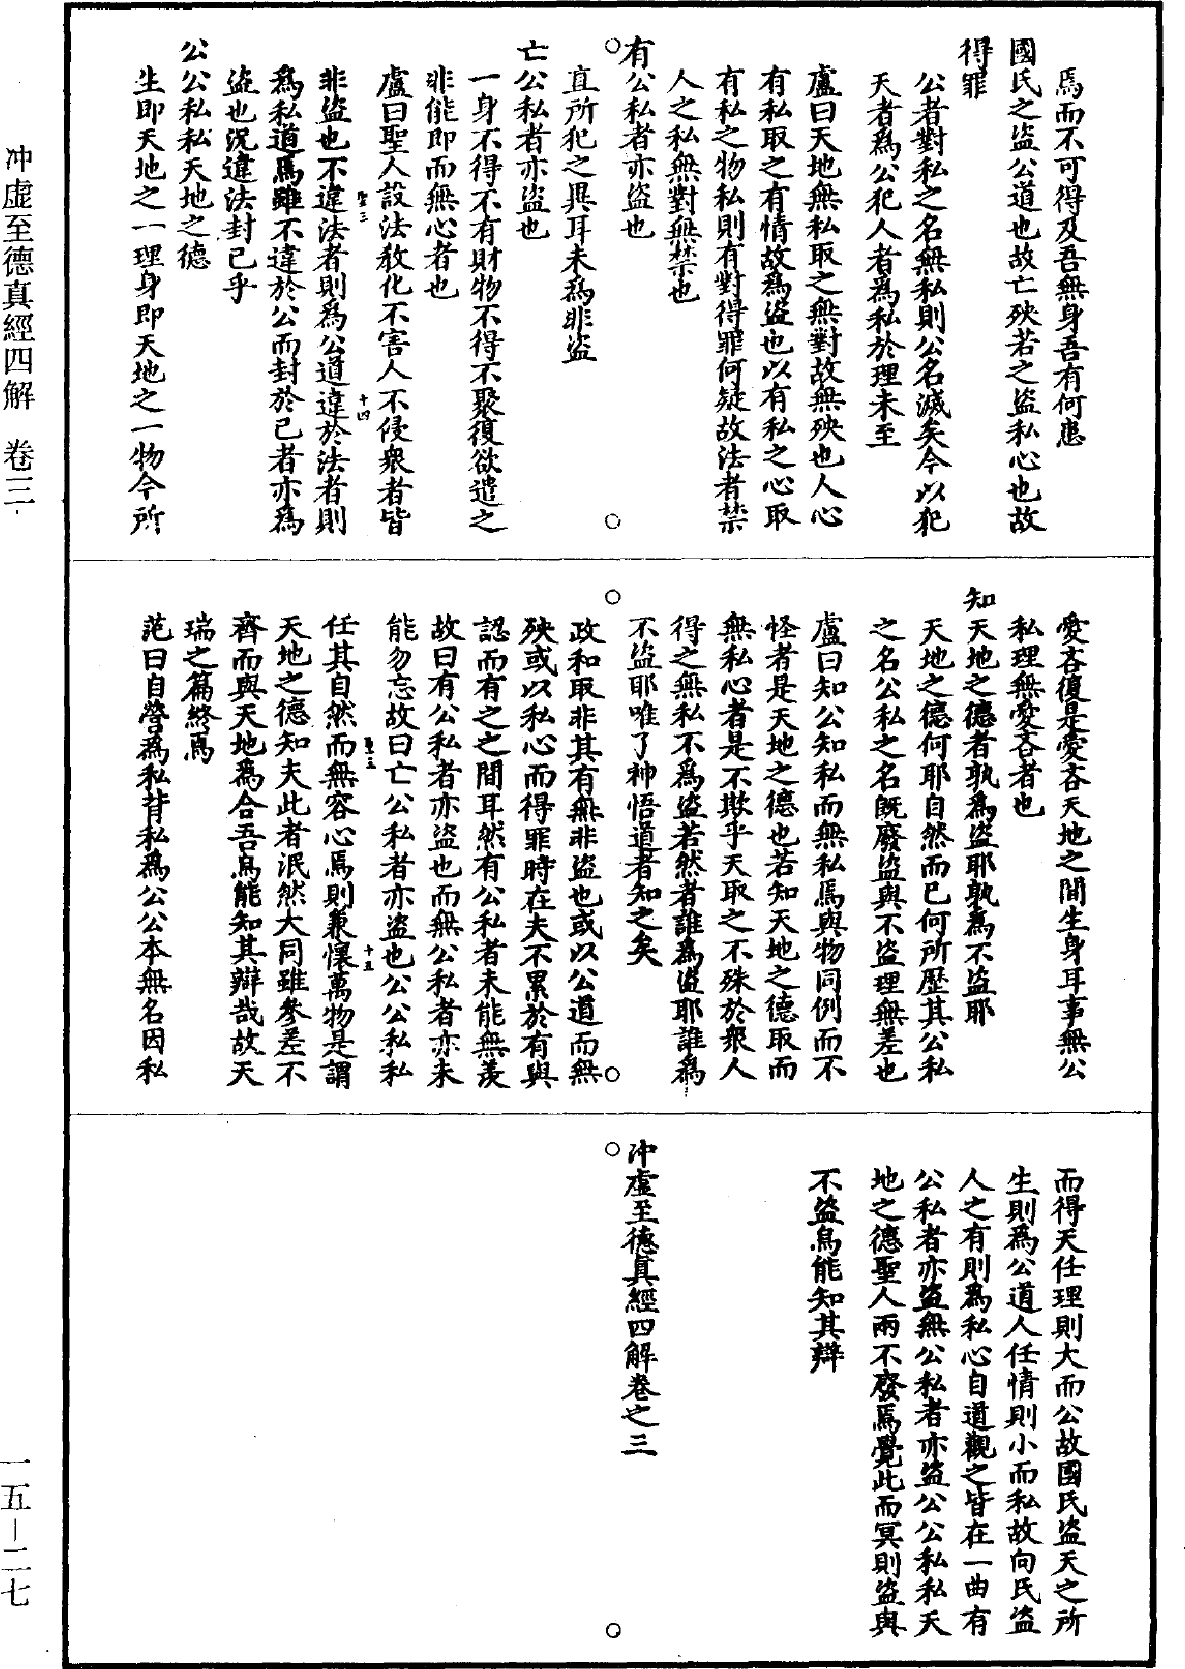 焉而不可得及吾無身吾有何患
國氏之盜公道也故亡殃若之盜私心也故
得罪
公者對私之名無私則公名滅矣今以犯
天者為公犯人者為私於理未至
盧曰天地無私取之無對故無殃也人心
有私取之有情故為盜也以有私之心取
有私之物私則有對得罪何疑故法者禁
人之私無對無禁也
有公私者亦盜也
直所犯之異耳未為非盜
亡公私者亦盜也
一身不得不有財物不得不聚復欲遣之
非能即而無心者也
盧曰聖人設法教化不害人不侵衆者皆
非盜也不違法者則為公道違於法者則
為私道焉雖不違於公而封於己者亦為
盜也況違法封己乎
公公私私天地之德
生即天地之一理身即天地之一物今所
愛吝復是愛吝天地之間生身耳事無公
私理無愛吝者也
知天地之德者孰為盜耶孰為不盜耶
天地之德何耶自然而已何所歷其公私
之名公私之名既廢盜與不盜理無差也
盧曰知公知私而無私焉與物同例而不
怪者是天地之德也若知天地之德取而
無私心者是不欺乎天取之不殊於衆人
得之無私不為盜若然者誰為盜耶誰為
不盜耶唯了神悟道者知之矣
政和取非其有無非盜也或以公道而無
殃或以私心而得罪時在夫不累於有與
認而有之之間耳然有公私者未能無羨
故曰有公私者亦盜也而無公私者亦未
能勿忘故曰亡公私者亦盜也公公私私
任其自然而無容心焉則兼懷萬物是謂
天地之德知夫此者泯然大同雖參差不
齊而與天地為合吾烏能知其辯哉故天
瑞之篇終焉
范曰自營為私背私為公公本無名因私
而得天任理則大而公故國氏盜天之所
生則為公道人任情則小而私故向氏盜
人之有則為私心自道觀之皆在一曲有
公私者亦盜無公私者亦盜公公私私天
地之德聖人兩不廢焉覺此而冥則盜與
不盜烏能知其辯
沖虛至德真經四解卷之三
沖虛至德真經四解 卷三
一五－二七